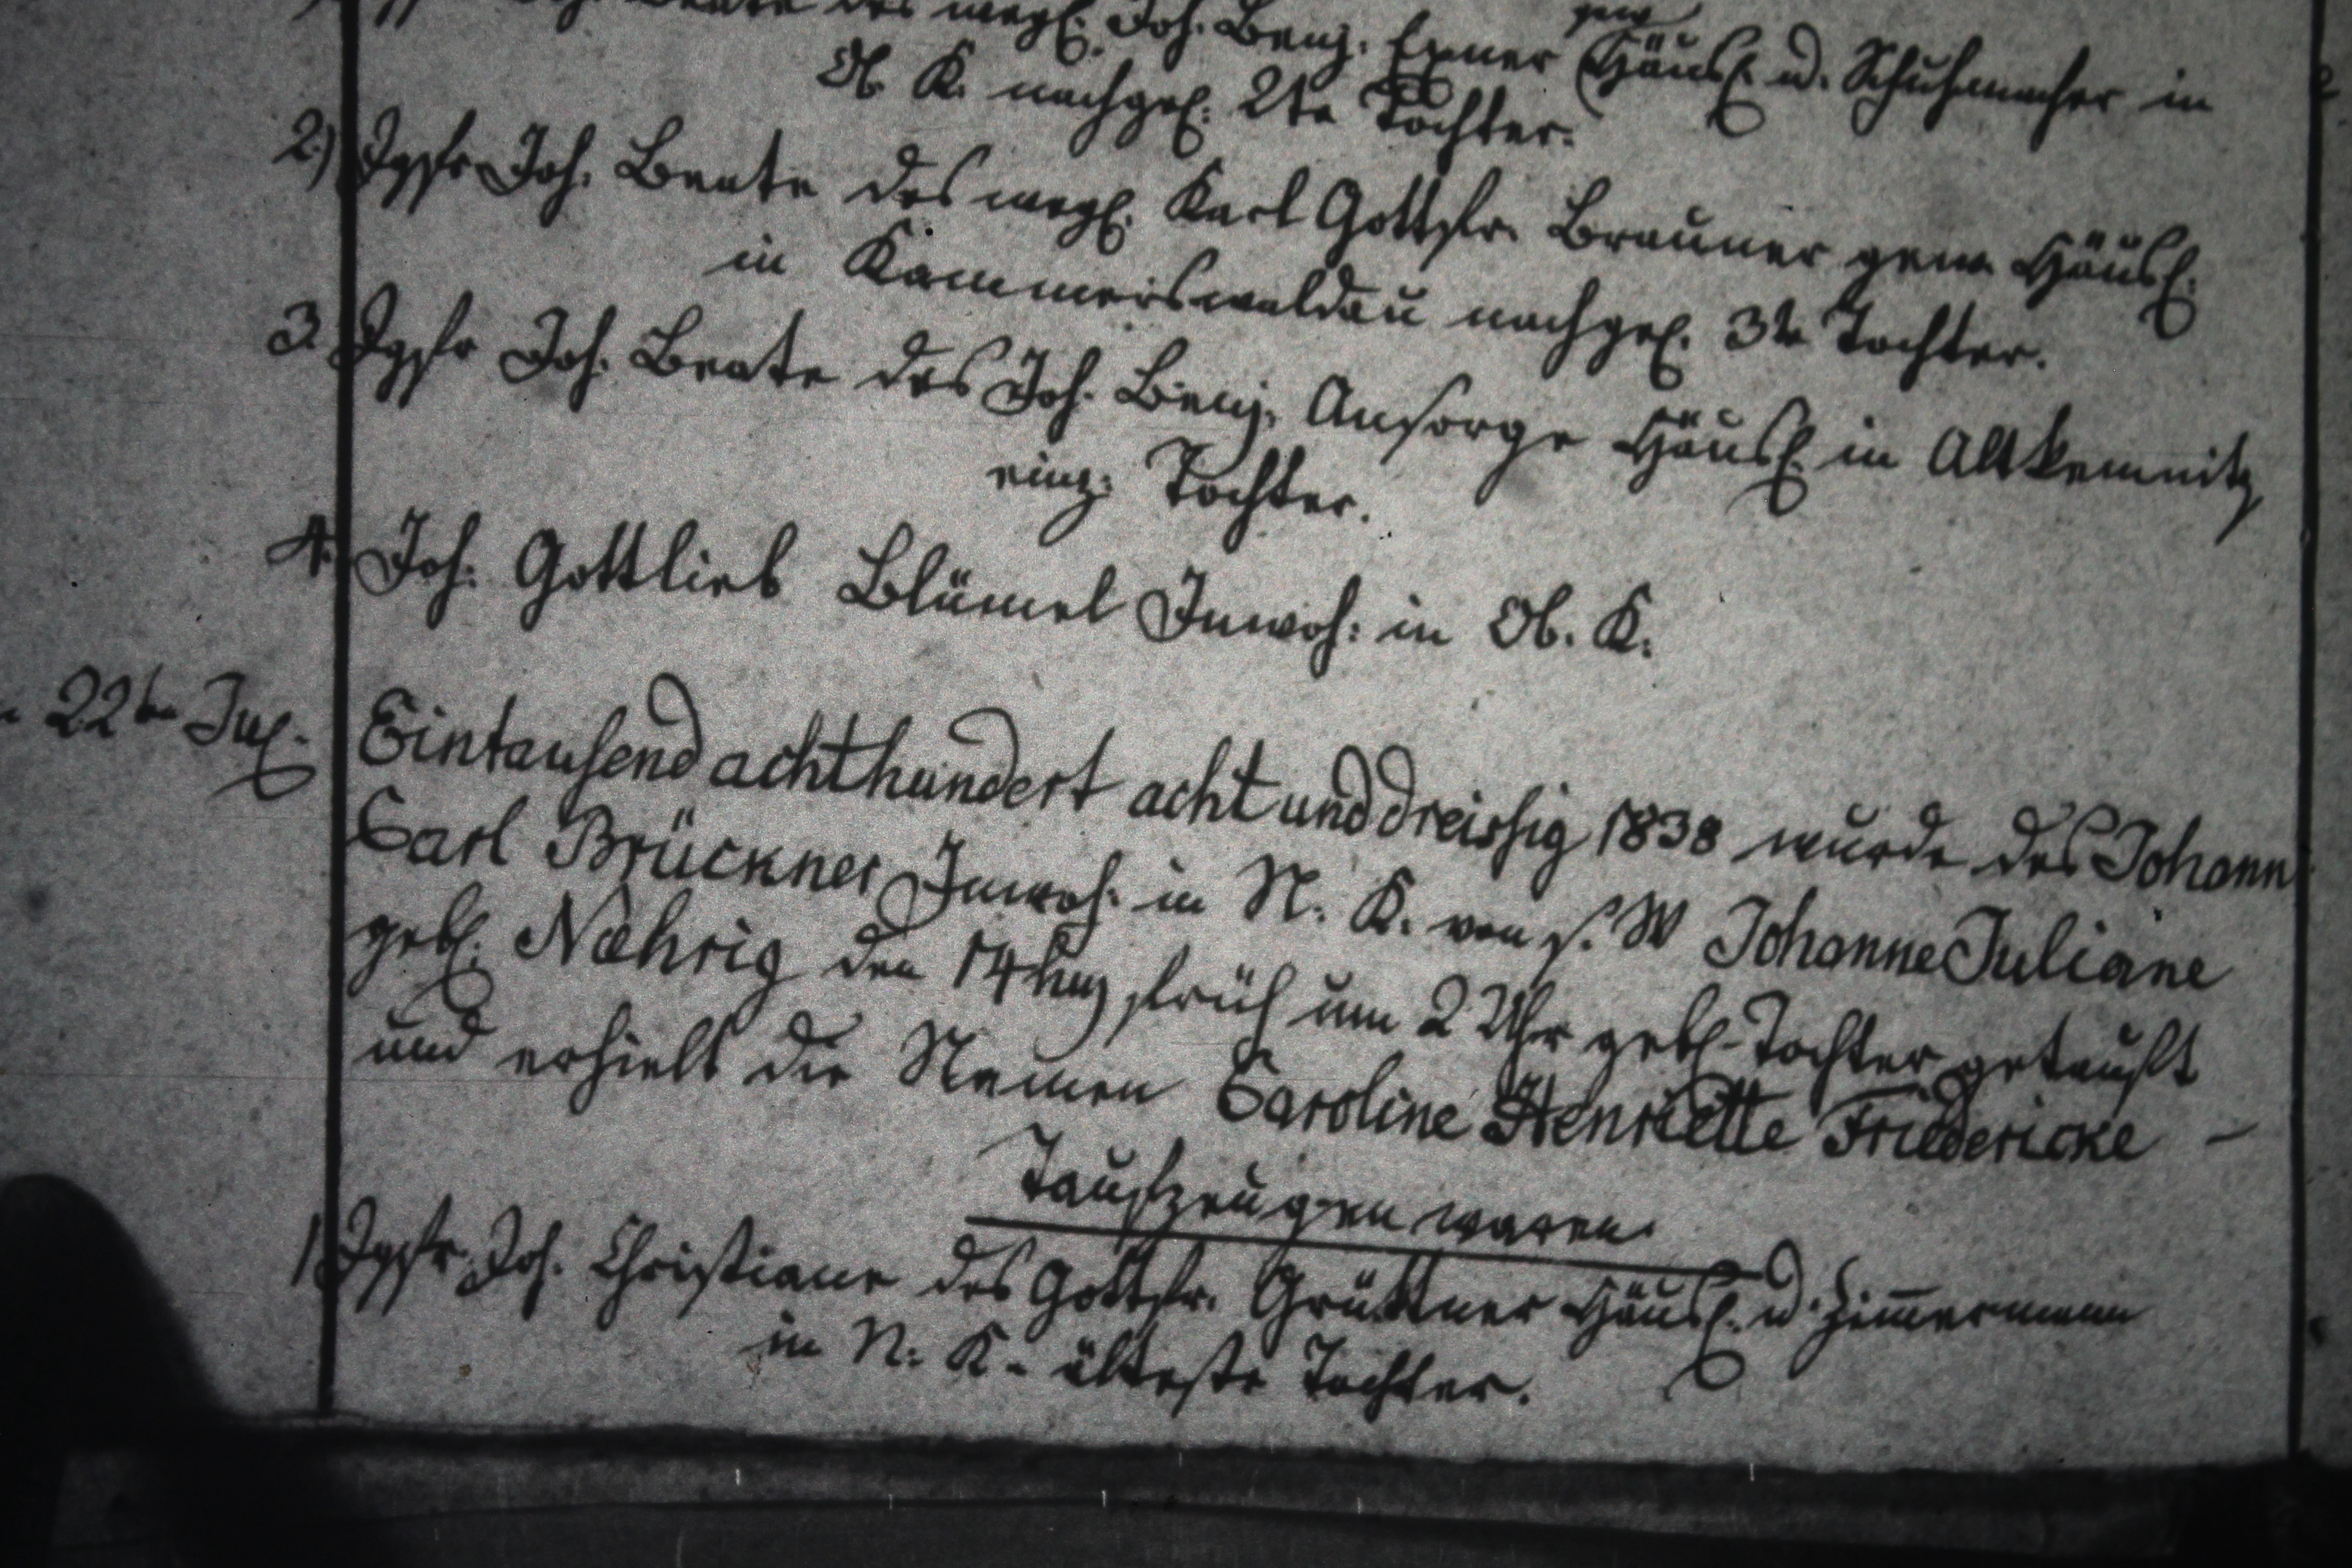 Beate des wegl. Joh. Benj. Exner gew. Häusl. u. Schuhmacher in
Ob. K. nachgel. 2te Tochter.
2.) Jgfr Joh. Beate des wegl. Karl Gottfr. Brauner gew. Häusl.
in Kammerswaldau nachgel. 3te Tochter.
3. Jgfr Joh. Beate des Joh. Benj. Ansorge Häusl. in Altkemnitz
einz: Tochter.
4. Joh: Gottlieb Blümel Inwoh: in Ob. K.
22ten Jul. Eintausend achthundert acht und dreissig 1838 wurde des Johann
Carl Brückner Inwoh. in N. K. von s. W Johanne Juliane
gebl. Nœhrig den 14 früh um 2 Uhr gebl. Tochter getauft
und erhielt die Namen Caroline Henriette Friedericke –
Taufzeugen waren.
1 Jgfr. Joh. Christiane des Gottfr. Grüttner Häusl. u. Zimmermann
in N. K. älteste Tochter.